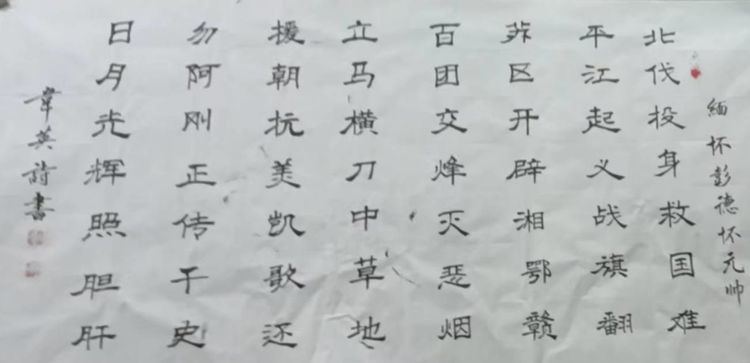 缅怀彭德怀元帅
北伐投身救国难
平江起义战旗翻
苏区开辟湘鄂赣
百团交烽灭恶烟
立马横刀中草地
援朝抗美凯歌还
勿阿刚正传千史
日月光辉照胆肝
韋英詩書